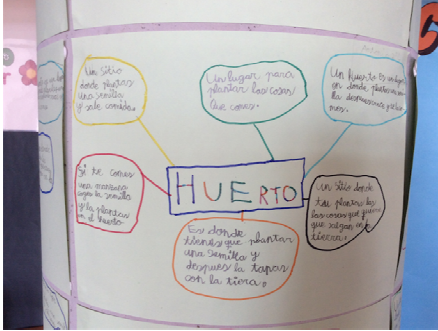 Un sitio
donde plantas
una semilla
y sale comida.
Un lugar para
plantar las cosas
que comes.
Un huerto es un lugar
en donde plantamos
la
Si te comes
una manzana
coges la semilla
y la plantas
en el huerto
HUERTO
Un sitio donde
tu plantas las
las cosas que quieres
que salgan en la
tierra.
Es donde
tienes que plantar
una semilla y
después la tapas
con la tiera.